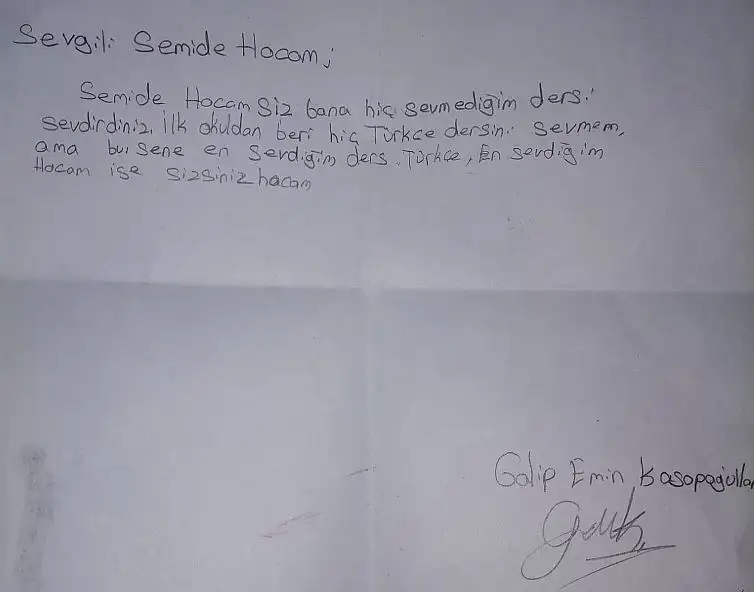 Sevgili Semide Hocam;
Semide Hocam Siz bana hiç sevmediğim dersi
sevdirdiniz. İlk okuldan beri hiç Türkçe dersini sevmem,
ama bu sene en sevdiğim ders Türkçe, En sevdiğim
Hocam ise sizsiniz hacam
Galip Emin Kasapoğulla